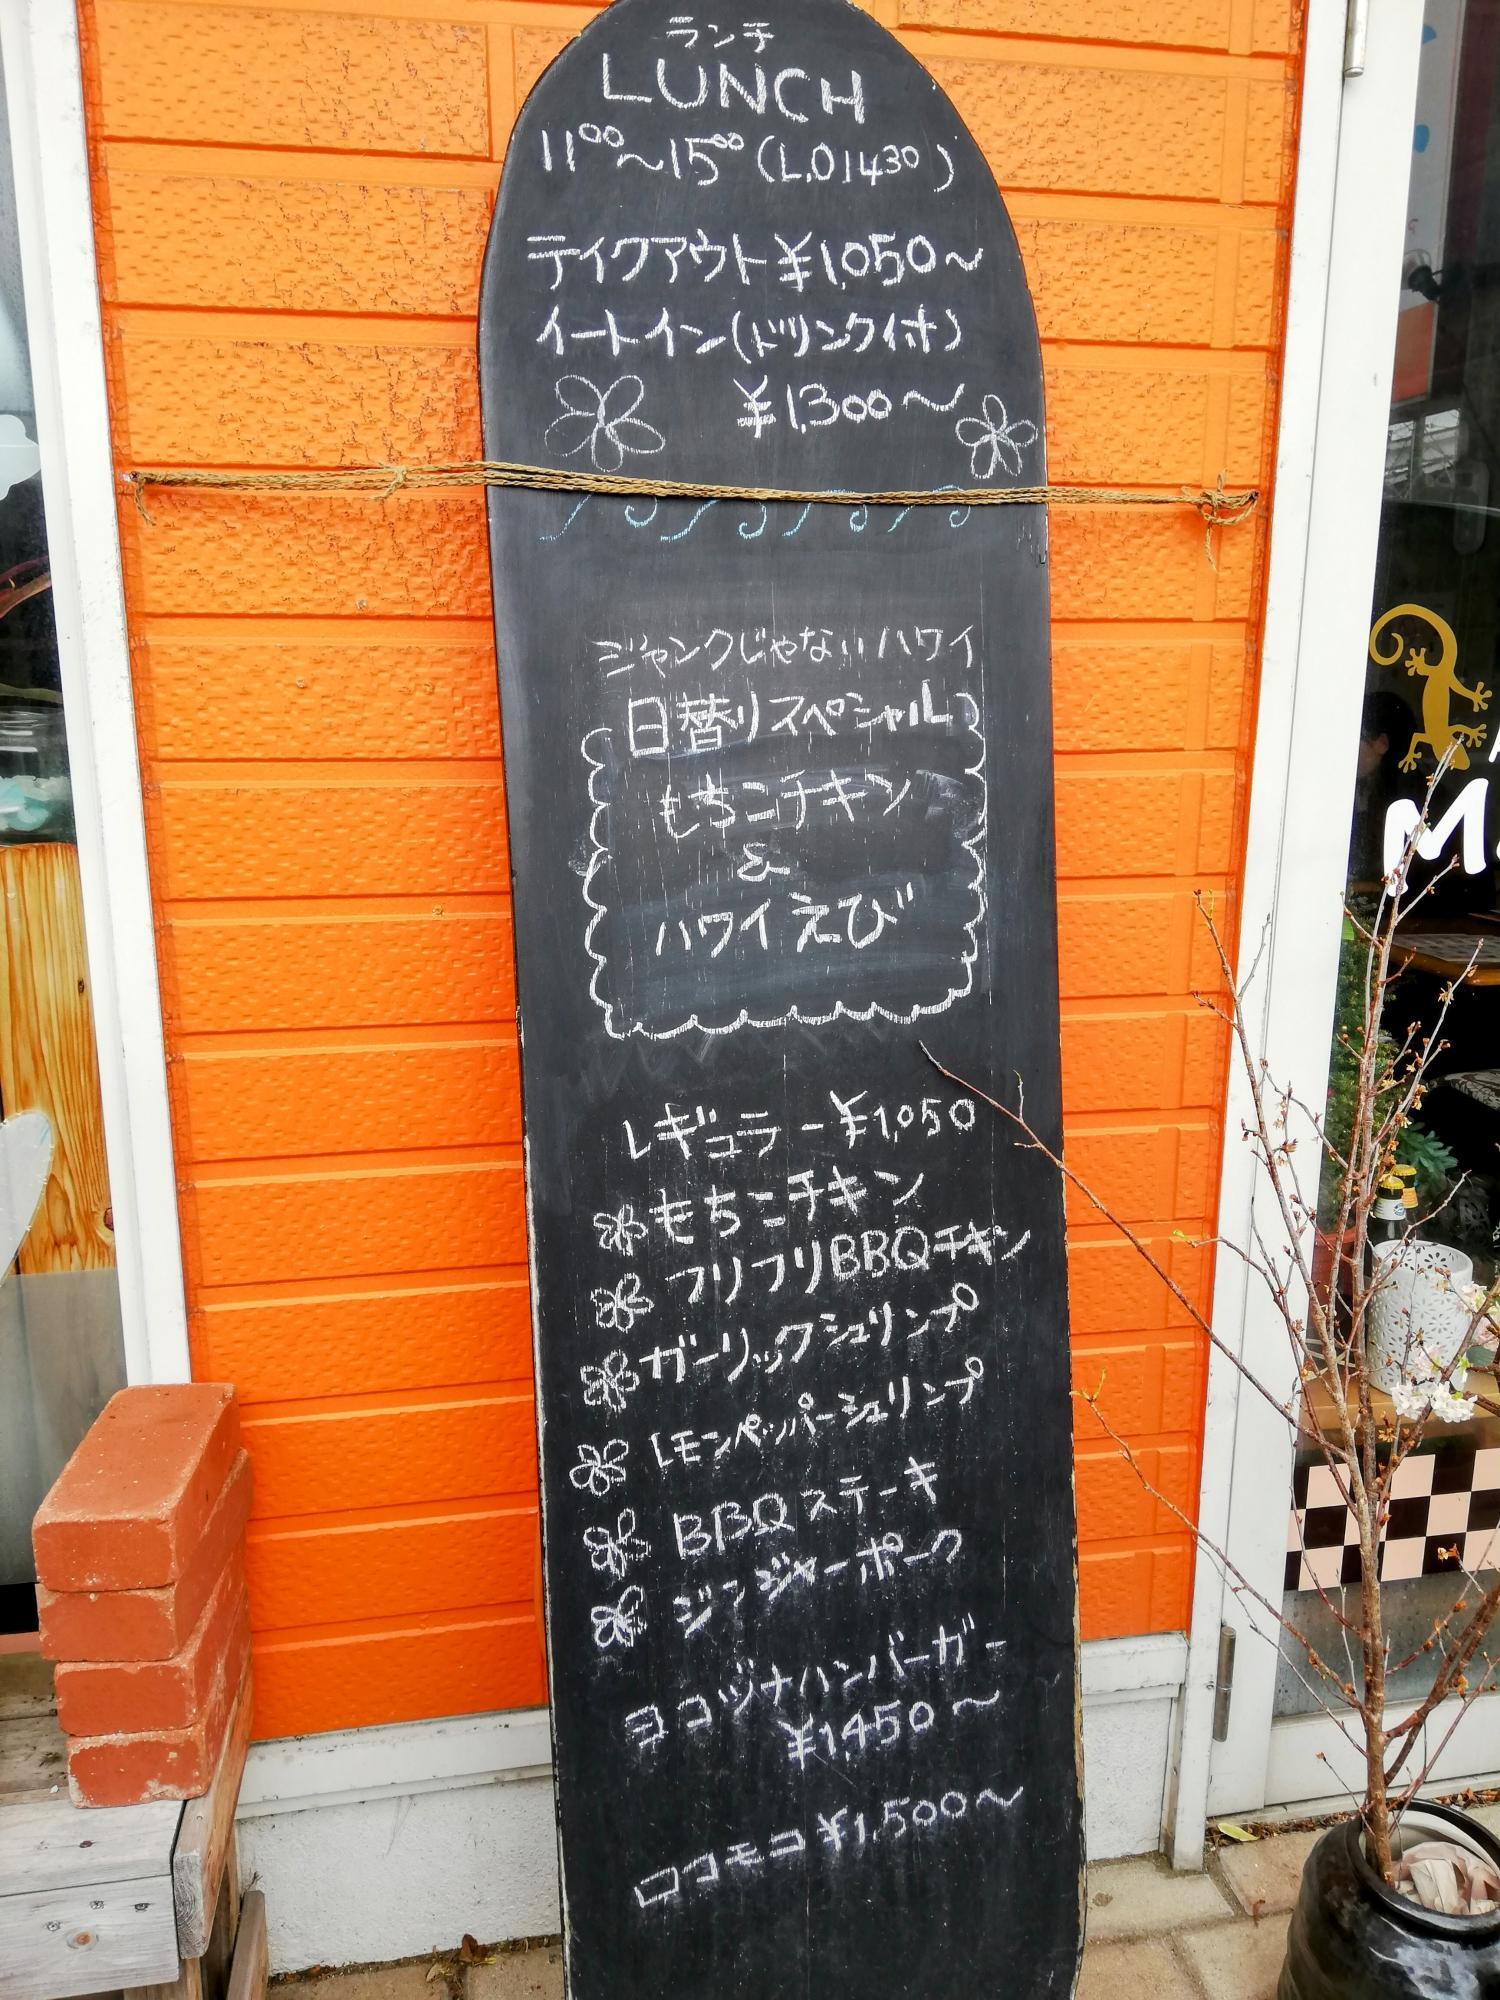 ランチ
LUNCH
1100~1500(L.O1430)
テイクアウト¥1,050~
イートイン(ドリンク付)
¥1,300~
ジャンクじゃないハワイ
日替りスペシャル
もちこチキン
&
ハワイえび
レギュラー¥1,050
もちこチキン
フリフリBBQチキン
ガーリックシュリンプ
レモンペッパーシュリンプ
BBQステーキ
ジンジャーポーク
ヨコヅナハンバーガー
¥1,450~
ロコモコ¥1,500~